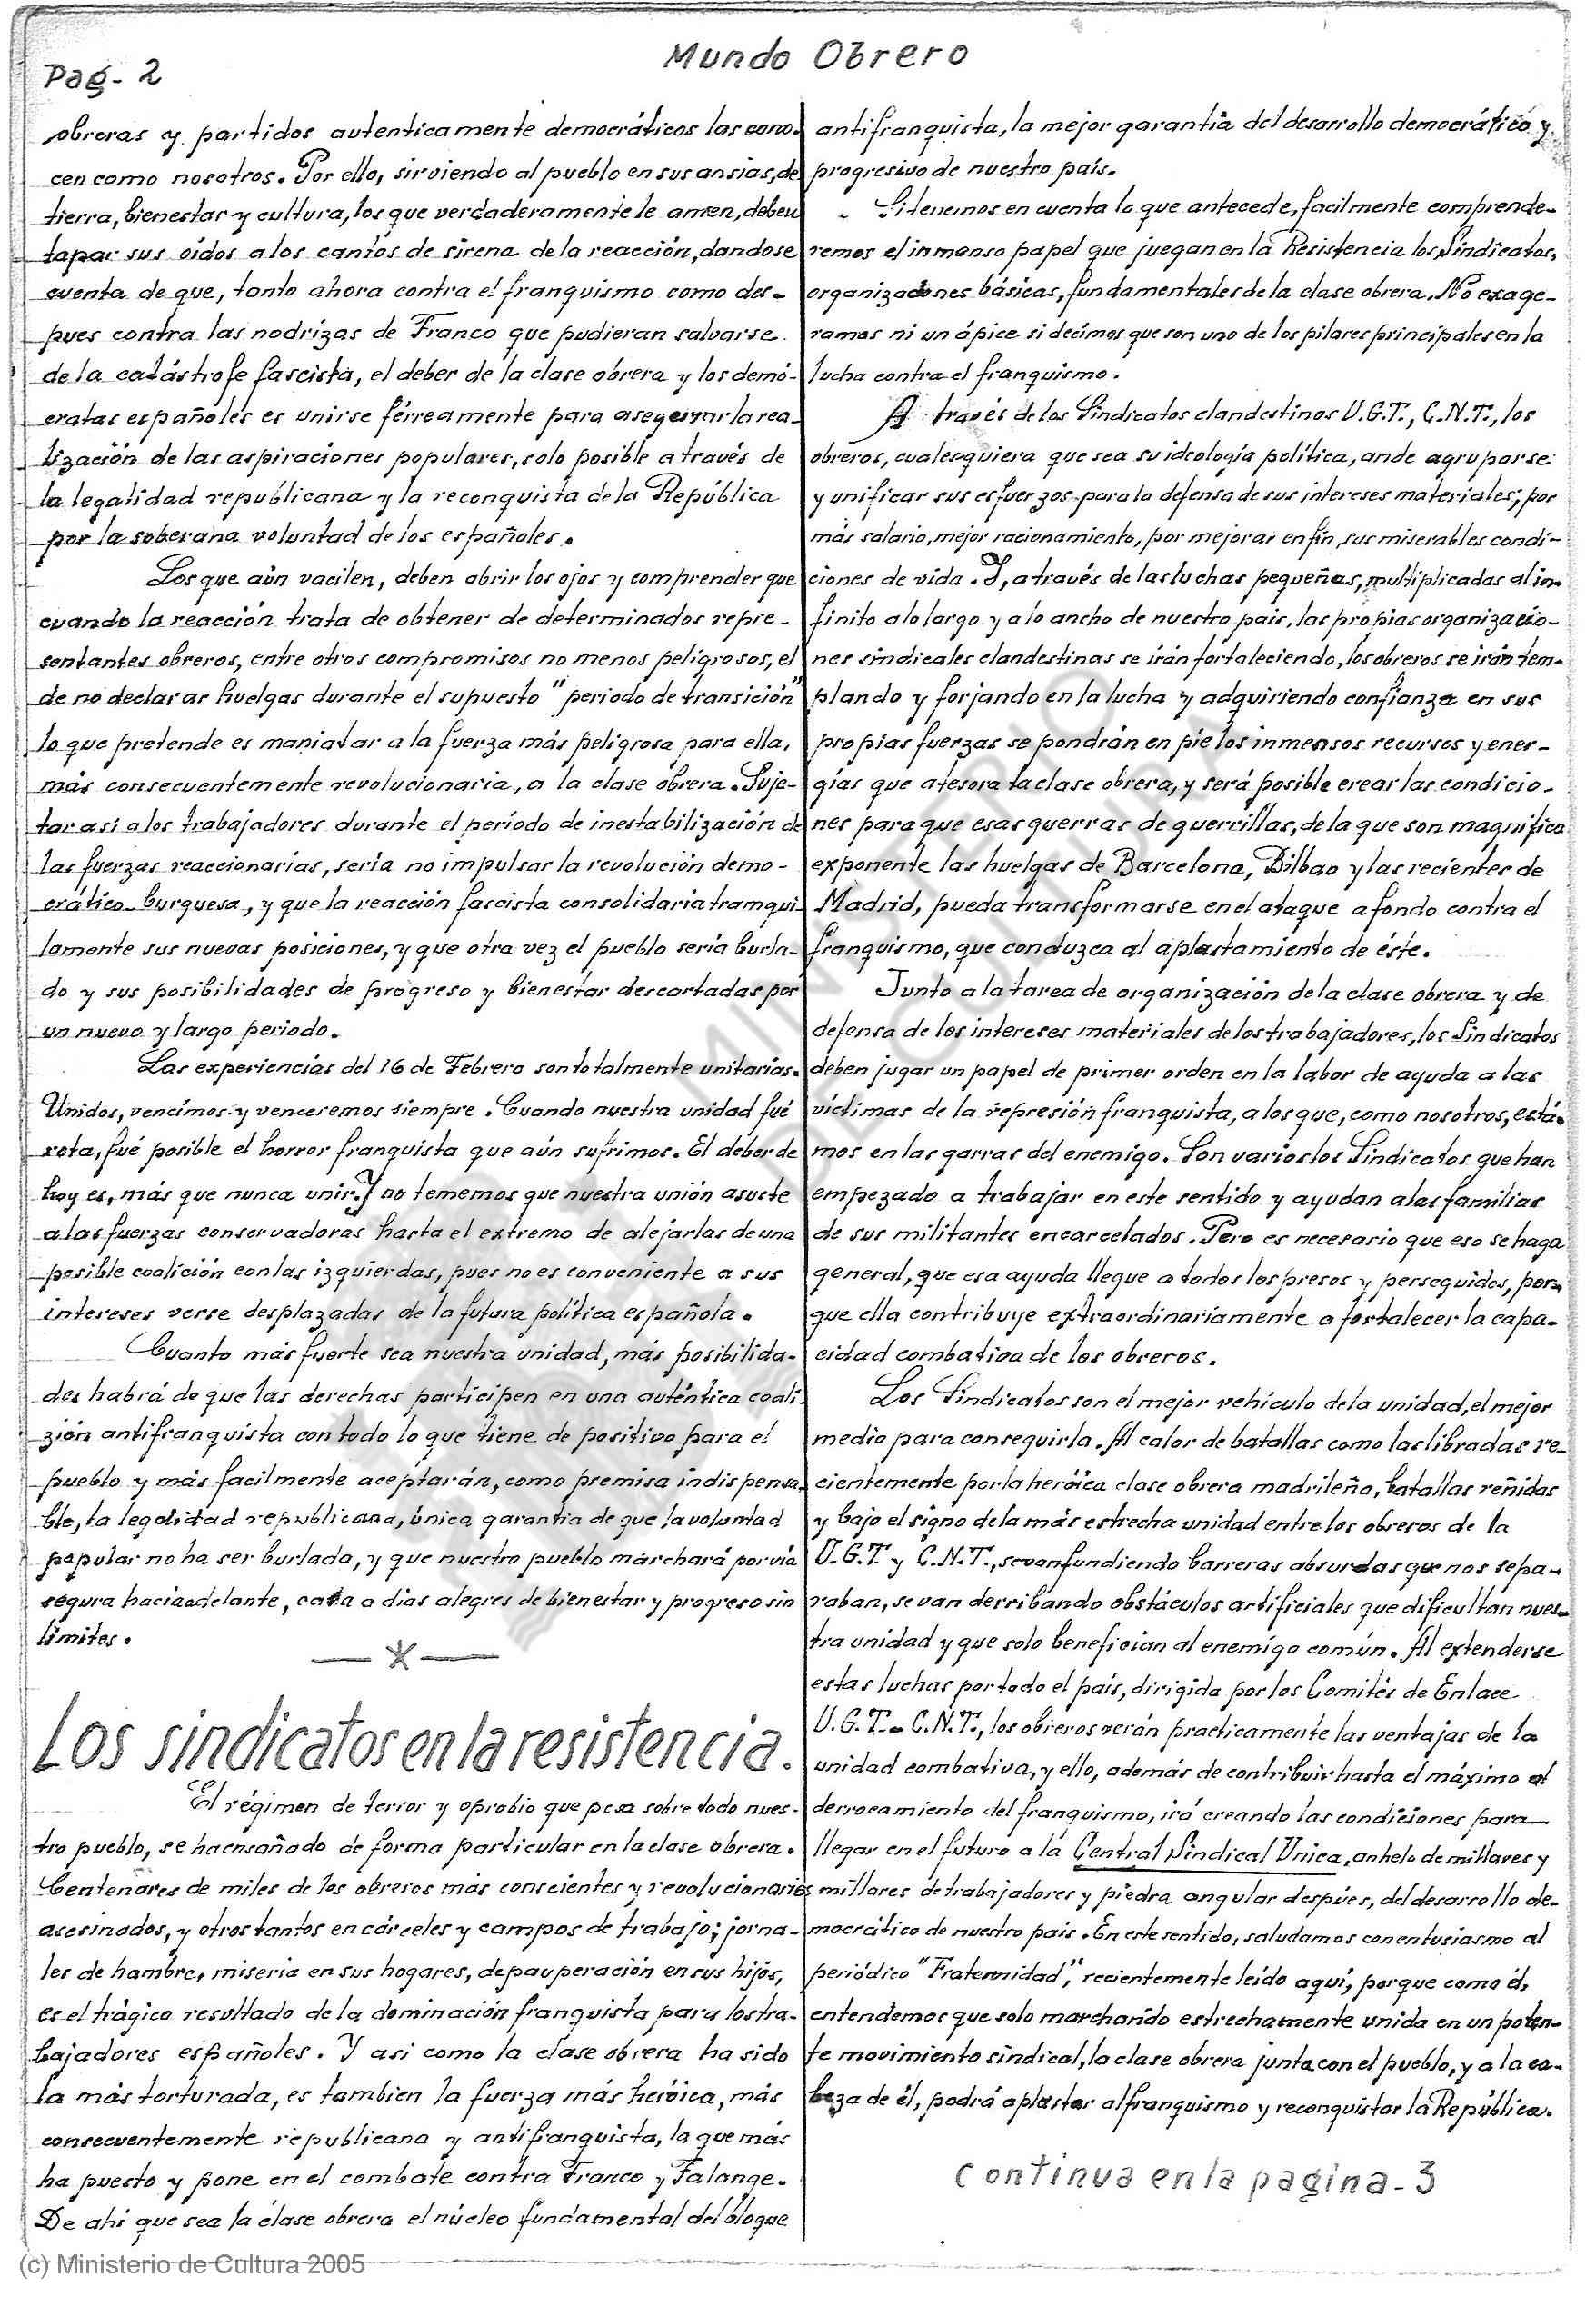 Mundo Obrero
Pag- 2
obreras y partidos autenticamente democráticos las cono-
cen como nosotros. Por ello, sirviendo al pueblo en sus ansias, de
tierra, bienestar y cultura, los que verdaderamente le amen, deben
tapar sus oídos a los cantos de sirena de la reacción, dandose
cuenta de que, tanto ahora contra el franquismo como des-
pues contra las nodrizas de Franco que pudieran salvarse
de la catástrofe fascista, el deber de la clase obrera y los demó-
cratas españoles es unirse férreamente para asegurar la rea-
lización de las aspiraciones populares, solo posible a través de
la legalidad republicana y la reconquista de la República
por la soberana voluntad de los españoles.
Los que aún vacilen, deben abrir los ojos y comprender que
cuando la reacción trata de obtener de determinados repre-
sentantes obreros, entre otros compromisos no menos peligrosos, el
de no declarar huelgas durante el supuesto "periodo de transición"
lo que pretende es maniatar a la fuerza más peligrosa para ella,
más consecuentemente revolucionaria, a la clase obrera. Suje-
tar asi a los trabajadores durante el período de inestabilización de
las fuerzas reaccionarias, sería no impulsar la revolución demo-
crático-burguesa, y que la reacción fascista consolidaria tramqui
lamente sus nuevas posiciones, y que otra vez el pueblo sería burla-
do y sus posibilidades de progreso y bienestar descartadas por
un nuevo y largo periodo.
Las experiencias del 16 de Febrero son totalmente unitarias.
Unidos, vencimos y venceremos siempre. Cuando nuestra unidad fué
rota, fué posible el horror franquista que aún sufrimos. El deber de
hoy es, más que nunca unir. Y no tememos que nuestra unión asuste
a las fuerzas conservadoras hasta el extremo de alejarlas de una
posible coalición con las izquierdas, pues no es conveniente a sus
intereses verse desplazadas de la futura política española.
Cuanto más fuerte sea nuestra unidad, más posibilida-
des habrá de que las derechas participen en una auténtica coali-
zión antifranquista con todo lo que tiene de positivo para el
pueblo y más facilmente aceptarán, como premisa indispensa-
ble, la legalidad republicana, única garantía de que la voluntad
popular no ha ser burlada, y que nuestro pueblo marchará por vía
segura hacia adelante, cara a dias alegres de bienestar y progreso sin
límites.
Los sindicatos en la resistencia.
El régimen de terror y oprobio que pesa sobre todo nues-
tro pueblo, se ha ensañado de forma particular en la clase obrera.
Centenares de miles de los obreros más conscientes y revolucionarios
asesinados, y otros tantos en cárceles y campos de trabajo; jorna-
les de hambre, miseria en sus hogares, depauperación en sus hijos,
es el trágico resultado de la dominación franquista para los tra-
bajadores españoles. Y asi como la clase obrera ha sido
la más torturada, es tambien la fuerza más heróica, más
consecuentemente republicana y antifranquista, la que más
ha puesto y pone en el combate contra Franco y Falange.
De ahi que sea la clase obrera el núcleo fundamental del bloque
antifranquista, la mejor garantía del desarrollo democrático y
progresivo de nuestro país.
Si tenemos en cuenta lo que antecede, facilmente comprende-
remos el inmenso papel que juegan en la Resistencia los Sindicatos,
organizaciones básicas, fundamentales de la clase obrera. No exage-
ramos ni un ápice si decimos que son uno de los pilares principales en la
lucha contra el franquismo.
A través de los Sindicatos clandestinos U.G.T., C.N.T., los
obreros, cualesquiera que sea su ideología política, ande agruparse
y unificar sus esfuerzos para la defensa de sus intereses materiales, por
más salario, mejor racionamiento, por mejorar en fin, sus miserables condi-
ciones de vida. Y, a través de las luchas pequeñas, multiplicadas al in-
finito a lo largo y a lo ancho de nuestro país, las propias organizacio-
nes sindicales clandestinas se irán fortaleciendo, los obreros se irán tem-
plando y forjando en la lucha y adquiriendo confianza en sus
propias fuerzas se pondrán en píe los inmensos recursos y ener-
gías que atesora la clase obrera, y será posible crear las condicio-
nes para que esas guerras de guerrillas, de la que son magnifico
exponente las huelgas de Barcelona, Bilbao y las recientes de
Madrid, pueda transformarse en el ataque a fondo contra el
franquismo, que conduzca al aplastamiento de éste.
Junto a la tarea de organización de la clase obrera y de
defensa de los intereses materiales de los trabajadores, los Sindicatos
deben jugar un papel de primer orden en la labor de ayuda a las
víctimas de la represión franquista, a los que, como nosotros, está-
mos en las garras del enemigo. Son varios los Sindicatos que han
empezado a trabajar en este sentido y ayudan a las familias
de sus militantes encarcelados. Pero es necesario que eso se haga
general, que esa ayuda llegue a todos los presos y perseguidos, por-
que ella contribuye extraordinariamente a fortalecer la capa-
cidad combativa de los obreros.
Los Sindicatos son el mejor vehículo de la unidad, el mejor
medio para conseguirla. Al calor de batallas como las libradas re-
cientemente por la heróica clase obrera madrileña, batallas reñidas
y bajo el signo de la más estrecha unidad entre los obreros de la
U.G.T. y C.N.T., se van fundiendo barreras absurdas que nos sepa-
raban, se van derribando obstáculos artificiales que dificultan nues-
tra unidad y que solo benefician al enemigo común. Al extenderse
estas luchas por todo el país, dirigida por los Comités de Enlace
U.G.T.-C.N.T., los obreros verán practicamente las ventajas de la
unidad combativa, y ello, además de contribuir hasta el máximo al
derrocamiento del franquismo, irá creando las condiciones para
llegar en el futuro a la Central Sindical Unica, anhelo de millares y
millares de trabajadores y piedra angular despúes, del desarrollo de-
mocrático de nuestro país. En este sentido, saludamos con entusiasmo al
periódico "Fraternidad", recientemente leído aquí, porque como él,
entendemos que solo marchando estrechamente unida en un poten-
te movimiento sindical, la clase obrera junta con el pueblo, y a la ca-
beza de él, podrá aplastar al franquismo y reconquistar la República.
continua en la pagina-3
(c) Ministerio de Cultura 2005